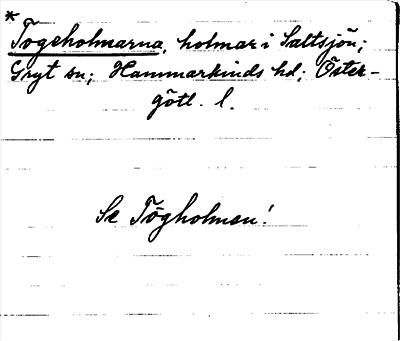 *
Togeholmarna, holmar i Saltsjön;
Gryt sn; Hammarkinds hd; Öster-
götl. l.
Se Tögholmen!